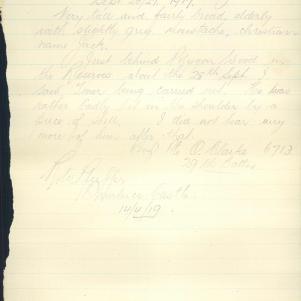 Sept. 20/21, 1917.
Very tall and fairly broad, elderly
with slightly grey moustache, christian
name Jack.
Just behind Wood in
the Reserves about the 25th Sept. I
saw being carried out. He was
rather badly hit in the shoulder by a
piece of shell. I did not hear any
more of him after that.
O. Clarke 6713
29th Battn.
14/4/19.